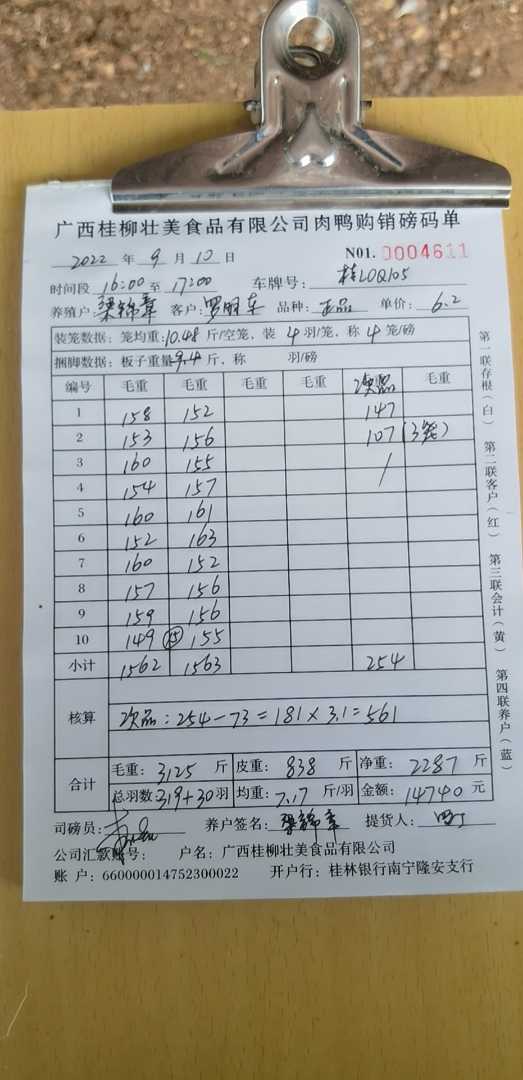 广西桂柳壮美食品有限公司肉鸭购销磅码单
2022 年 9 月 10 日 N01. 0004611
时间段 16:00 至 17:00 车牌号: 桂L0Q105
养殖户: 梁锦章 客户: 罗明车 品种: 正品 单价: 6.2
装笼数据: 笼均重: 10.48 斤/空笼, 装 4 羽/笼, 称 4 笼/磅
捆脚数据: 板子重量 9.4 斤, 称 羽/磅
编号 毛重 毛重 毛重 毛重 次品 毛重
1 158 152 147
2 153 156 107 (3笼)
3 160 155 /
4 154 157
5 160 161
6 152 163
7 160 152
8 157 156
9 159 156
10 149 15 155
小计 1562 1563 254
核算 次品: 254-73=181×3.1=561
合计 毛重: 3125 斤 皮重: 838 斤 净重: 2287 斤
总羽数 319+30 羽 均重: 7.17 斤/羽 金额: 14740 元
司磅员: 养户签名: 梁锦章 提货人:
公司汇款账号: 户名: 广西桂柳壮美食品有限公司
账 户: 660000014752300022 开户行: 桂林银行南宁隆安支行
第一联存根(白) 第二联客户(红) 第三联会计(黄) 第四联养户(蓝)